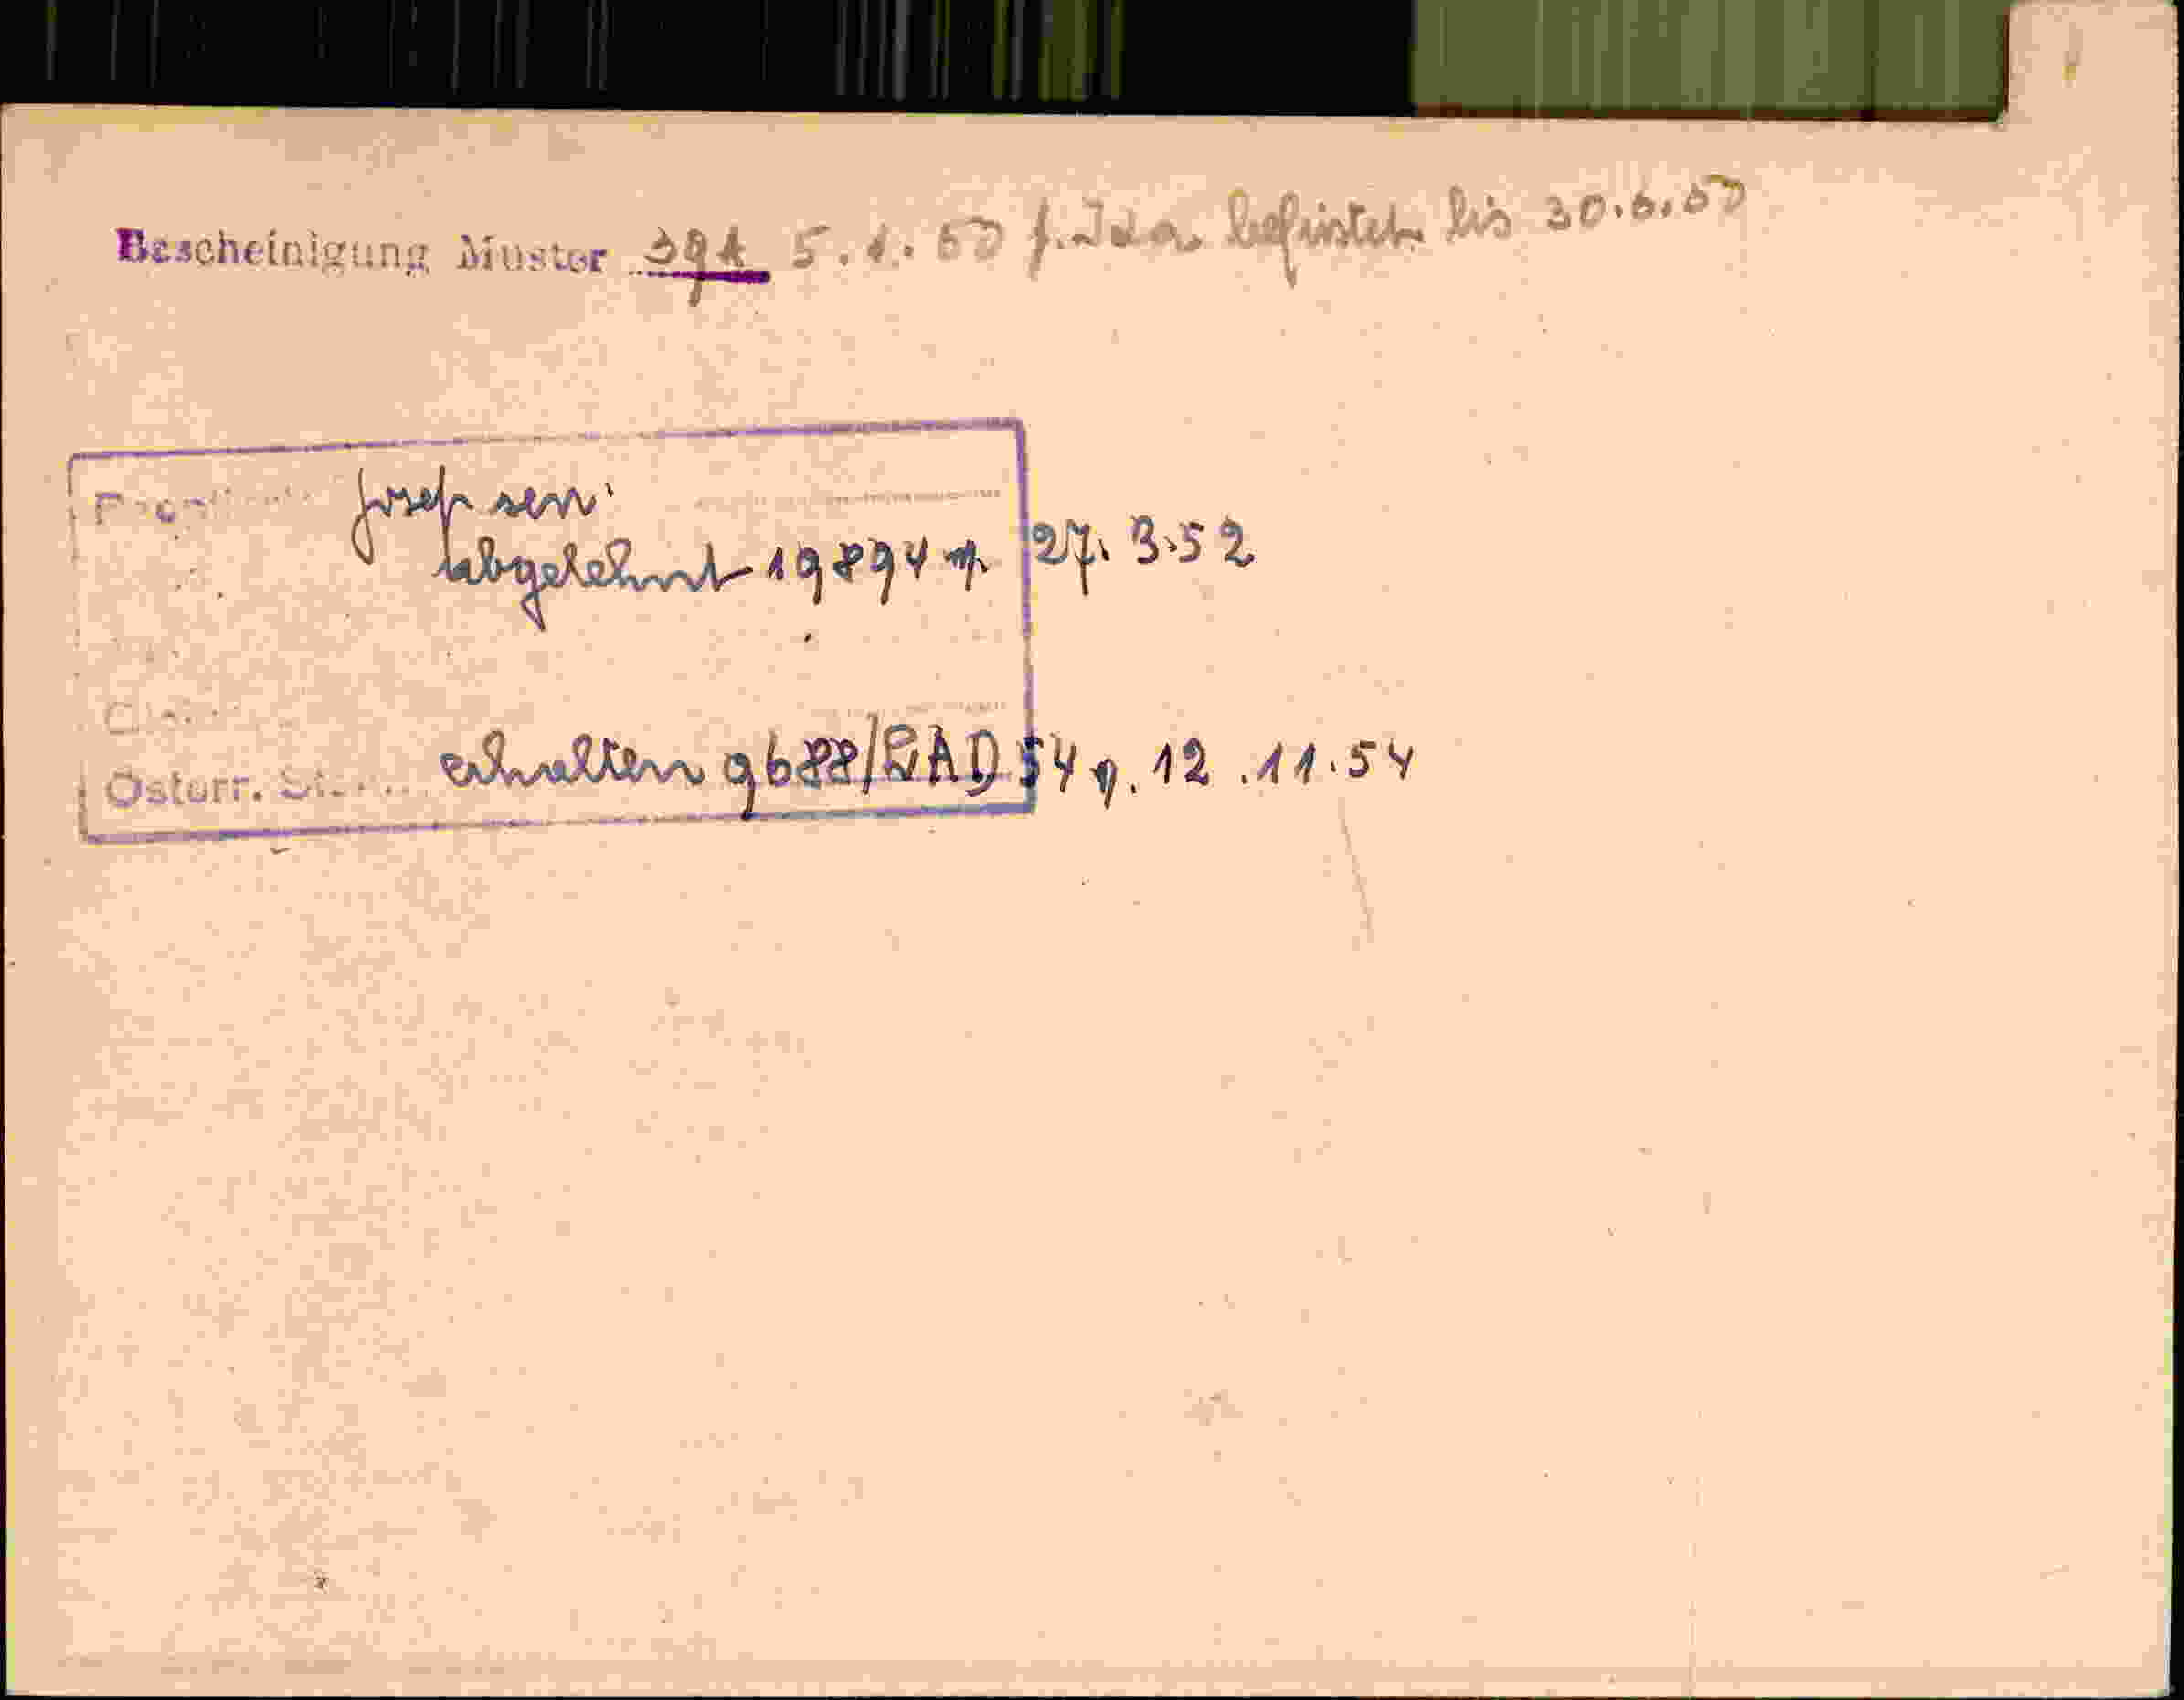 Bescheinigung Muster 39A 5.1.50 f. Ida befristet bis 30.6.50
Josef sen.
abgelehnt 19894 27.3.52
Österr.
erhalten 9688/LAD 54 12.11.54